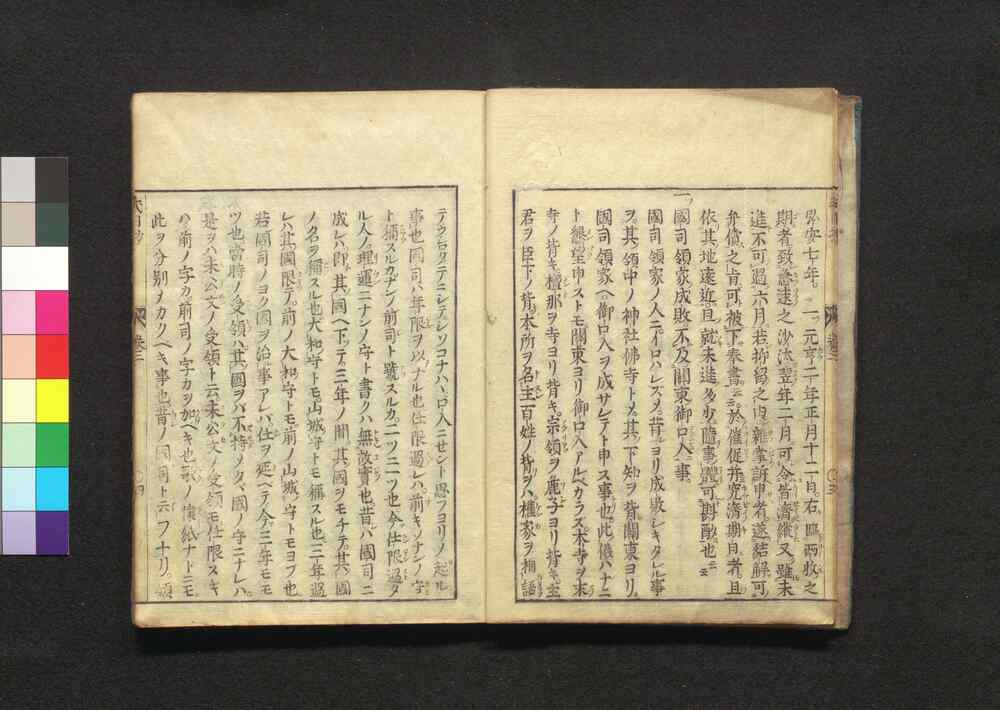 弘安七年。一。元亨二年正月十二日。右臨西收之
期者致急速之沙汰翌年二月可令皆濟縱又雖未
進不可過六月若抑留之由雜掌訴申者遂結解可
弁償之旨可被下奉書云云於催促并究濟期日者且
依其地遠近且就未進多少隨事體可斟酌也云云
一國司領家成敗不及關東御口入事
國司領家ノ人ニイロハレスメ昔ヨリ成敗シキタレル事
ヲ其領中ノ神社佛寺トメ其下知ヲ背關東ヨリ
國司領家ヘ御口入ヲ成サレテト申ス事也此儀ハナニ
ト懇望申ストモ關東ヨリ御口入ヘアルヘカラズ本寺ヲ末
寺ノ背キ檀那ヲ寺ヨリ背キ宗領ヲ庶子ヨリ背キ主
君ヲ臣下ノ背本所ヲ名主百姓ノ背ヲハ權家ヲ相語
テクセタテニシテレソコナハヽロ入ニセント思フヨリノ起ル
事也國司ハ年限ヲ以ナル也任限過レハ前キノナンノ守
ト稱スルカナンノ前司ト號スルカニツニ一ツ也今任限過タ
ル人ノ理運ニナンノ守ト書クハ無故實也昔ハ國司ニ
成レハ即其國ヘ下ッテ三年ノ間其國ヲモチテ其國
ノ名ヲ稱スル也大和守トモ山城守トモ稱スル也三年過
レハ其國限テ前ノ大和守トモ前ノ山城ノ守トモヨフ也
若國司ノヨク國ヲ治ル事アレハ任ヲ延ヘテ今三年モモ
ツ也當時ノ受領ハ其國ヲバ不持メクハ國ノ守ニナレハ
是ヲハ未公文ノ受領ト云未公文ノ受領モ任限スキ
ハ前ノ字カ前司ノ字カヲ加ヘキ也歌ノ懷紙ナトニモ
此ヲ分別メカクヘキ事也昔ノ國司ト云フナリ